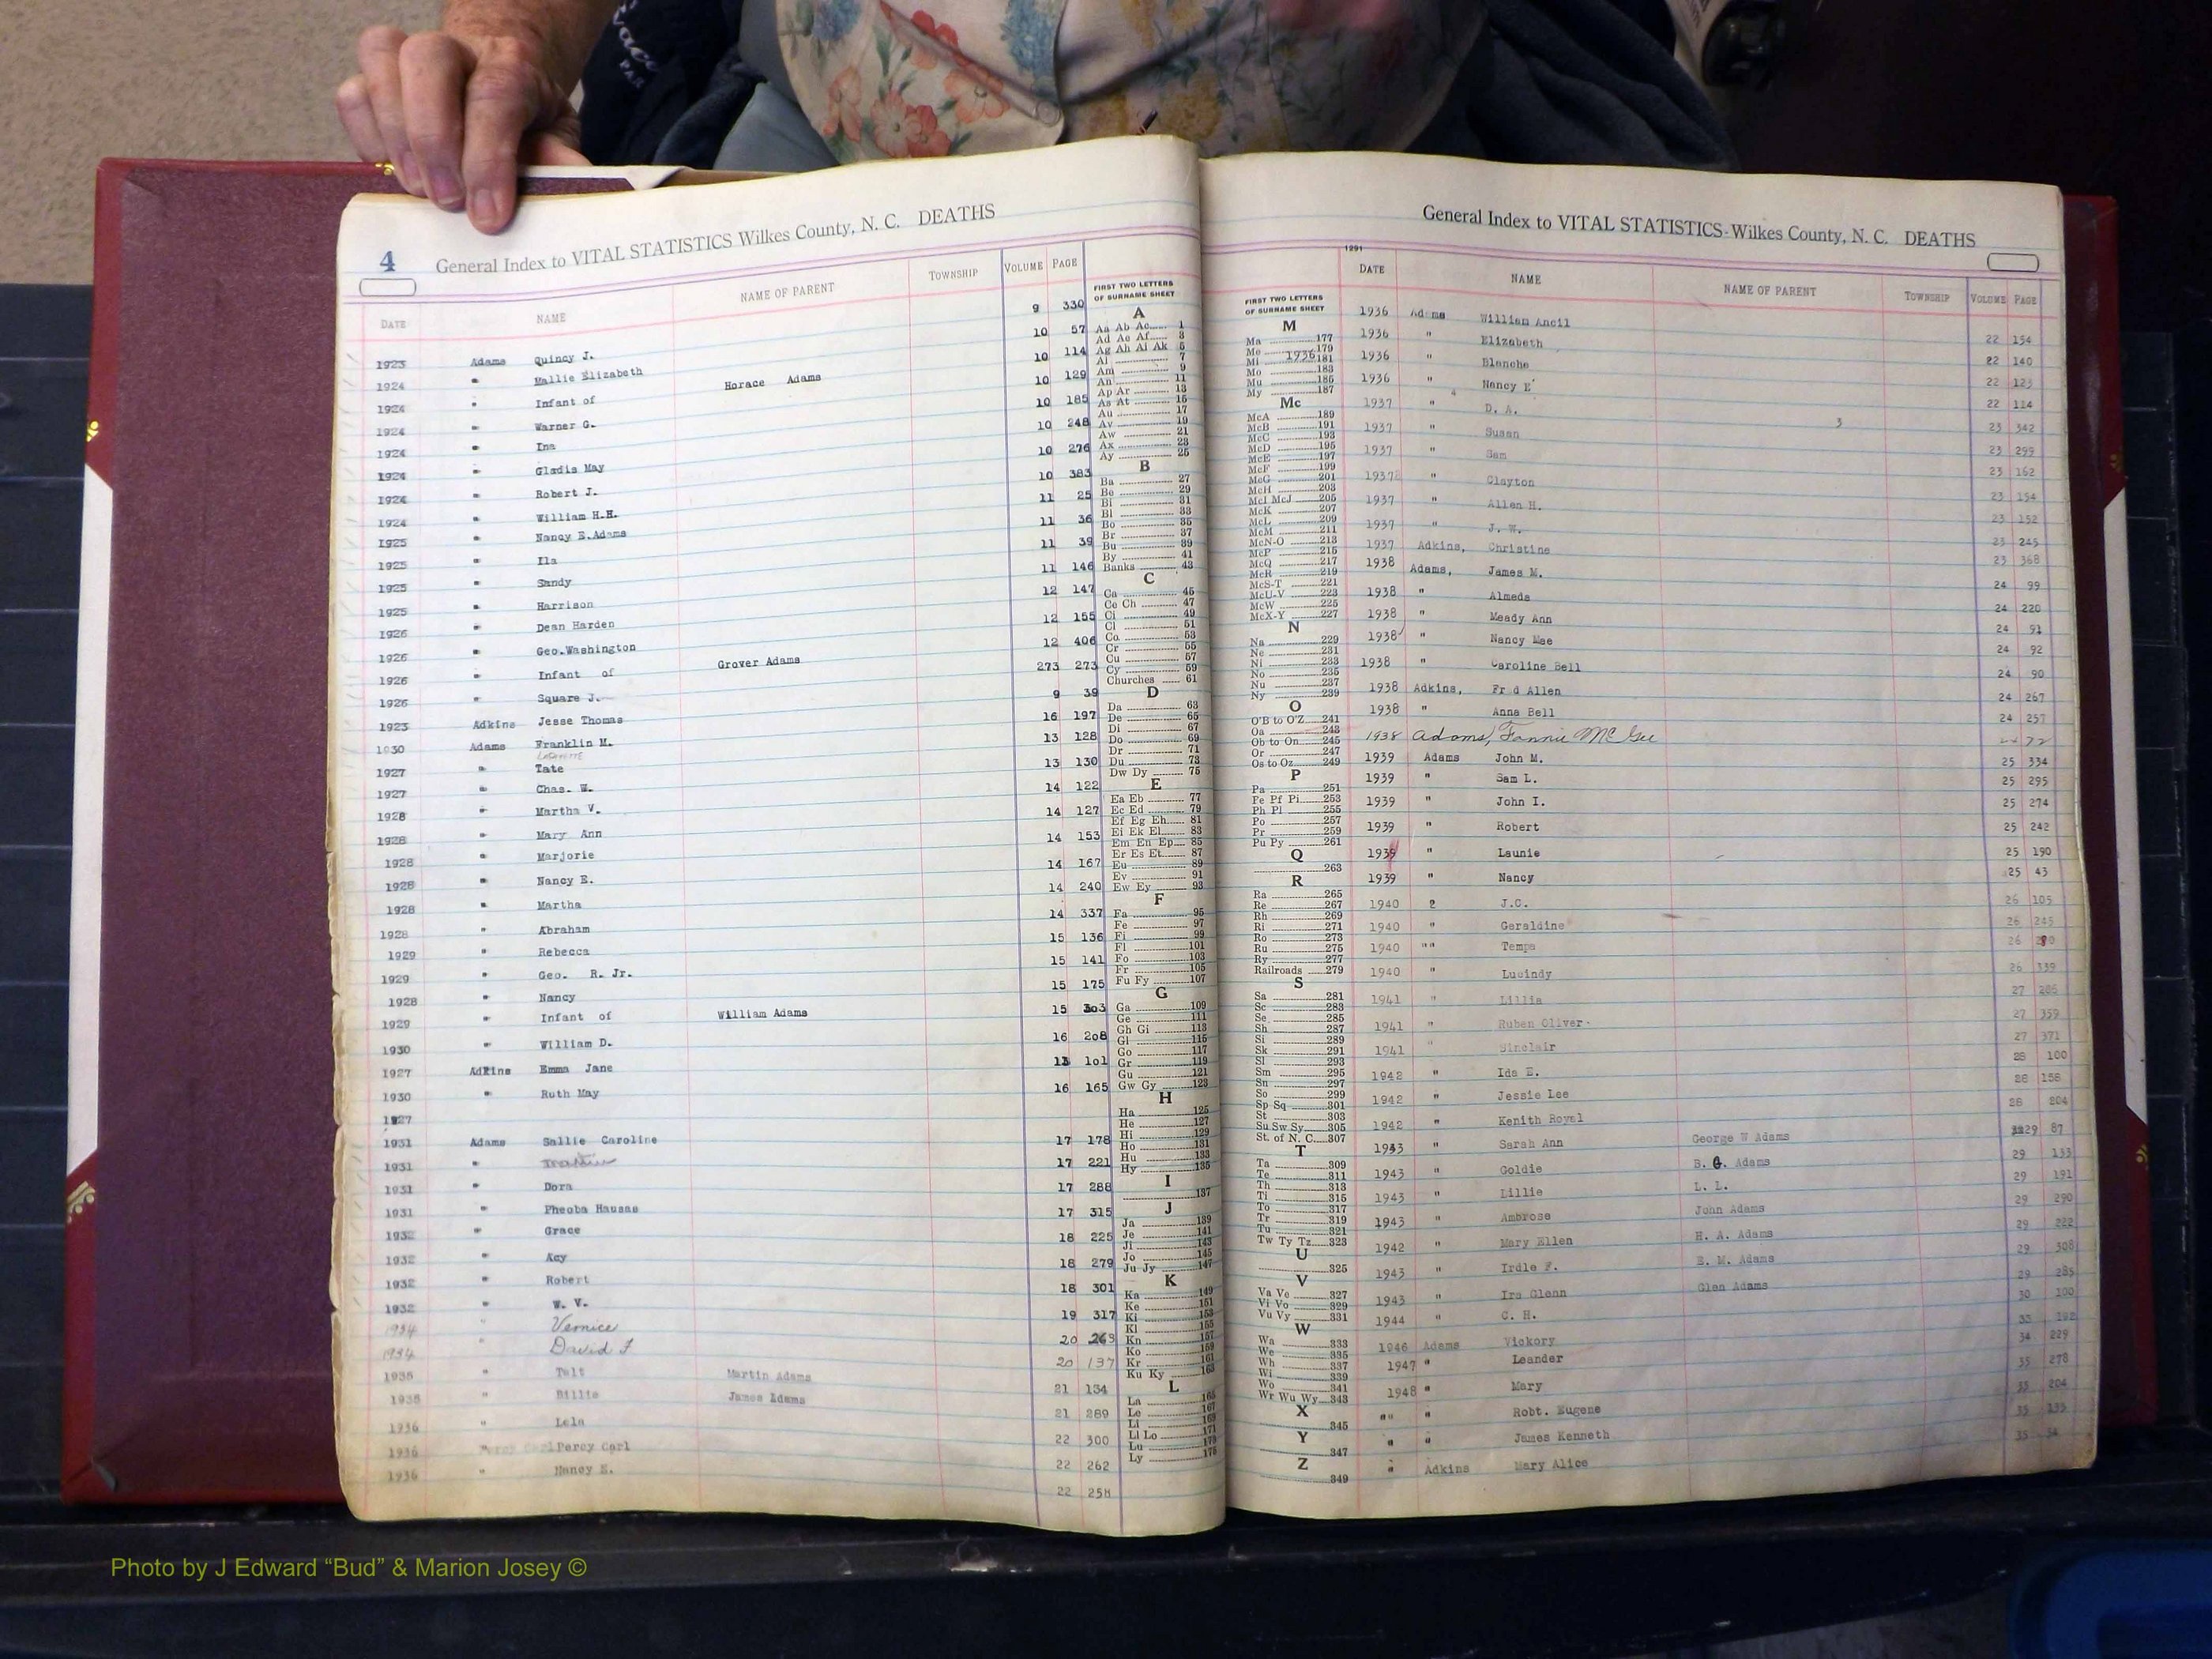 4
General Index to VITAL STATISTICS Wilkes County, N. C. DEATHS
DATE NAME NAME OF PARENT TOWNSHIP VOLUME PAGE
1923 Adams Quincy J. 9 330
1924 " Mallie Elizabeth 10 57
1924 " Infant of Horace Adams 10 114
1924 " Warner G. 10 129
1924 " Ina 10 185
1924 " Gladis May 10 248
1924 " Robert J. 10 276
1924 " William H.H. 10 383
1925 " Nancy E.Adams 11 25
1925 " Ila 11 36
1925 " Sandy 11 39
1925 " Harrison 11 146
1926 " Dean Harden 12 147
1926 " Geo.Washington 12 155
1926 " Infant of Grover Adams 12 406
1926 " Square J. 273 273
1923 Adkins Jesse Thomas 9 39
1930 Adams Franklin M. 16 197
LaFayette
1927 " Tate 13 128
1927 " Chas. W. 13 130
1928 " Martha V. 14 122
1928 " Mary Ann 14 127
1928 " Marjorie 14 153
1928 " Nancy E. 14 167
1928 " Martha 14 240
1928 " Abraham 14 337
1929 " Rebecca 15 136
1929 " Geo. R. Jr. 15 141
1928 " Nancy 15 175
1929 " Infant of William Adams 15 303
1930 " William D. 16 208
1927 Adkins Emma Jane 13 101
1930 " Ruth May 16 165
1927
1931 Adams Sallie Caroline 17 178
1931 " 17 221
1931 " Dora 17 288
1931 " Pheoba Hausas 17 315
1932 " Grace 18 225
1932 " Acy 18 279
1932 " Robert 18 301
1932 " W. V. 19 317
1934 " Vernice 20 263
1934 " David F 20 137
1935 " Telt Martin Adams 21 134
1935 " Billie James Adams 21 289
1936 " Lela 22 300
1936 Percy Carl 22 262
1936 " Nancy E. 22 258
FIRST TWO LETTERS
OF SURNAME SHEET
A
Aa Ab Ac 1
Ad Ae Af 3
Ag Ah Ai Ak 5
Al 7
Am 9
An 11
Ap Ar 13
As At 15
Au 17
Av 19
Aw 21
Ax 23
Ay 25
B
Ba 27
Be 29
Bi 31
Bl 33
Bo 35
Br 37
Bu 39
By 41
Banks 43
C
Ca 45
Ce Ch 47
Ci 49
Cl 51
Co 53
Cr 55
Cu 57
Cy 59
Churches 61
D
Da 63
De 65
Di 67
Do 69
Dr 71
Du 73
Dw Dy 75
E
Ea Eb 77
Ec Ed 79
Ef Eg Eh 81
Ei Ek El 83
Em En Ep 85
Er Es Et 87
Eu 89
Ev 91
Ew Ey 93
F
Fa 95
Fe 97
Fi 99
Fl 101
Fo 103
Fr 105
Fu Fy 107
G
Ga 109
Ge 111
Gh Gi 113
Gl 115
Go 117
Gr 119
Gu 121
Gw Gy 123
H
Ha 125
He 127
Hi 129
Ho 131
Hu 133
Hy 135
I
137
J
Ja 139
Je 141
Ji 143
Jo 145
Ju Jy 147
K
Ka 149
Ke 151
Ki 153
Kl 155
Kn 157
Ko 159
Kr 161
Ku Ky 163
L
La 165
Le 167
Li 169
Ll Lo 171
Lu 173
Ly 175
General Index to VITAL STATISTICS-Wilkes County, N. C. DEATHS
1291
FIRST TWO LETTERS
OF SURNAME SHEET
M
Ma 177
Me 179
Mi 1936 181
Mo 183
Mu 185
My 187
Mc
McA 189
McB 191
McC 193
McD 195
McE 197
McF 199
McG 201
McH 203
McI McJ 205
McK 207
McL 209
McM 211
McN-O 213
McP 215
McQ 217
McR 219
McS-T 221
McU-V 223
McW 225
McX-Y 227
N
Na 229
Ne 231
Ni 233
No 235
Nu 237
Ny 239
O
O'B to O'Z 241
Oa 243
Ob to On 245
Or 247
Os to Oz 249
P
Pa 251
Pe Pf Pi 253
Ph Pl 255
Po 257
Pr 259
Pu Py 261
Q
263
R
Ra 265
Re 267
Rh 269
Ri 271
Ro 273
Ru 275
Ry 277
Railroads 279
S
Sa 281
Sc 283
Se 285
Sh 287
Si 289
Sk 291
Sl 293
Sm 295
Sn 297
So 299
Sp Sq 301
St 303
Su Sw Sy 305
St. of N. C. 307
T
Ta 309
Te 311
Th 313
Ti 315
To 317
Tr 319
Tu 321
Tw Ty Tz 323
U
325
V
Va Ve 327
Vi Vo 329
Vu Vy 331
W
Wa 333
We 335
Wh 337
Wi 339
Wo 341
Wr Wu Wy 343
X
345
Y
347
Z
349
DATE NAME NAME OF PARENT TOWNSHIP VOLUME PAGE
1936 Adams William Ancil 22 154
1936 " Elizabeth 22 140
1936 " Blanche 22 123
1936 " Nancy E 22 114
1937 " D. A. 23 342
1937 " Susan 23 299
1937 " Sam 23 162
1937 " Clayton 23 154
1937 " Allen H. 23 152
1937 " J. W. 23 245
1937 Adkins, Christine 23 368
1938 Adams, James M. 24 99
1938 " Almeda 24 220
1938 " Meady Ann 24 91
1938 " Nancy Mae 24 92
1938 " Caroline Bell 24 90
1938 Adkins, Fr d Allen 24 267
1938 " Anna Bell 24 257
1938 Adams, Fannie McGee 72
1939 Adams John M. 25 334
1939 " Sam L. 25 295
1939 " John I. 25 274
1939 " Robert 25 242
1939 " Launie 25 190
1939 " Nancy 25 43
1940 2 J.C. 26 105
1940 " Geraldine 26 245
1940 "" Tempa 26
1940 " Lucindy 26 339
1941 " Lillie 27 286
1941 " Ruben Oliver 27 359
1941 " Sinclair 27 371
1942 " Ida E. 28 100
1942 " Jessie Lee 28 158
1942 " Kenith Royal 28 204
1943 " Sarah Ann George W Adams 29 87
1943 " Goldie B. G. Adams 29 133
1943 " Lillie L. L. 29 191
1943 " Ambrose John Adams 29 290
1942 " Mary Ellen H. A. Adams 29 222
1943 " Irdle F. E. M. Adams 29 308
1943 " Ira Glenn Glen Adams 29 285
1944 " C. H. 30 100
1946 Adams Vickory 33 192
1947 " Leander 34 229
1948 " Mary 35 278
"" " Robt. Eugene 35 204
" " James Kenneth 35 135
" Adkins Mary Alice 35 34
Photo by J Edward “Bud” & Marion Josey ©